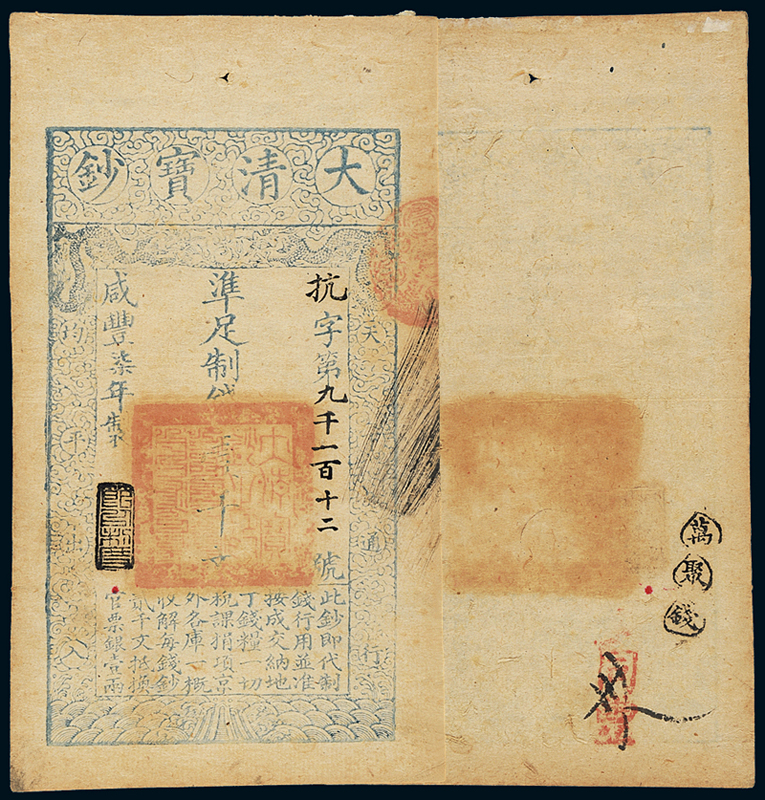 大清寶鈔
天
通行
均平出入
抗字第九千一百十二號
準足制錢
咸豐柒年製
此鈔即代制
錢行用並准
按成交納地
丁錢糧一切
稅課捐項京
外各庫一概
收解每錢鈔
貳千文抵換
官票銀壹兩
萬聚錢